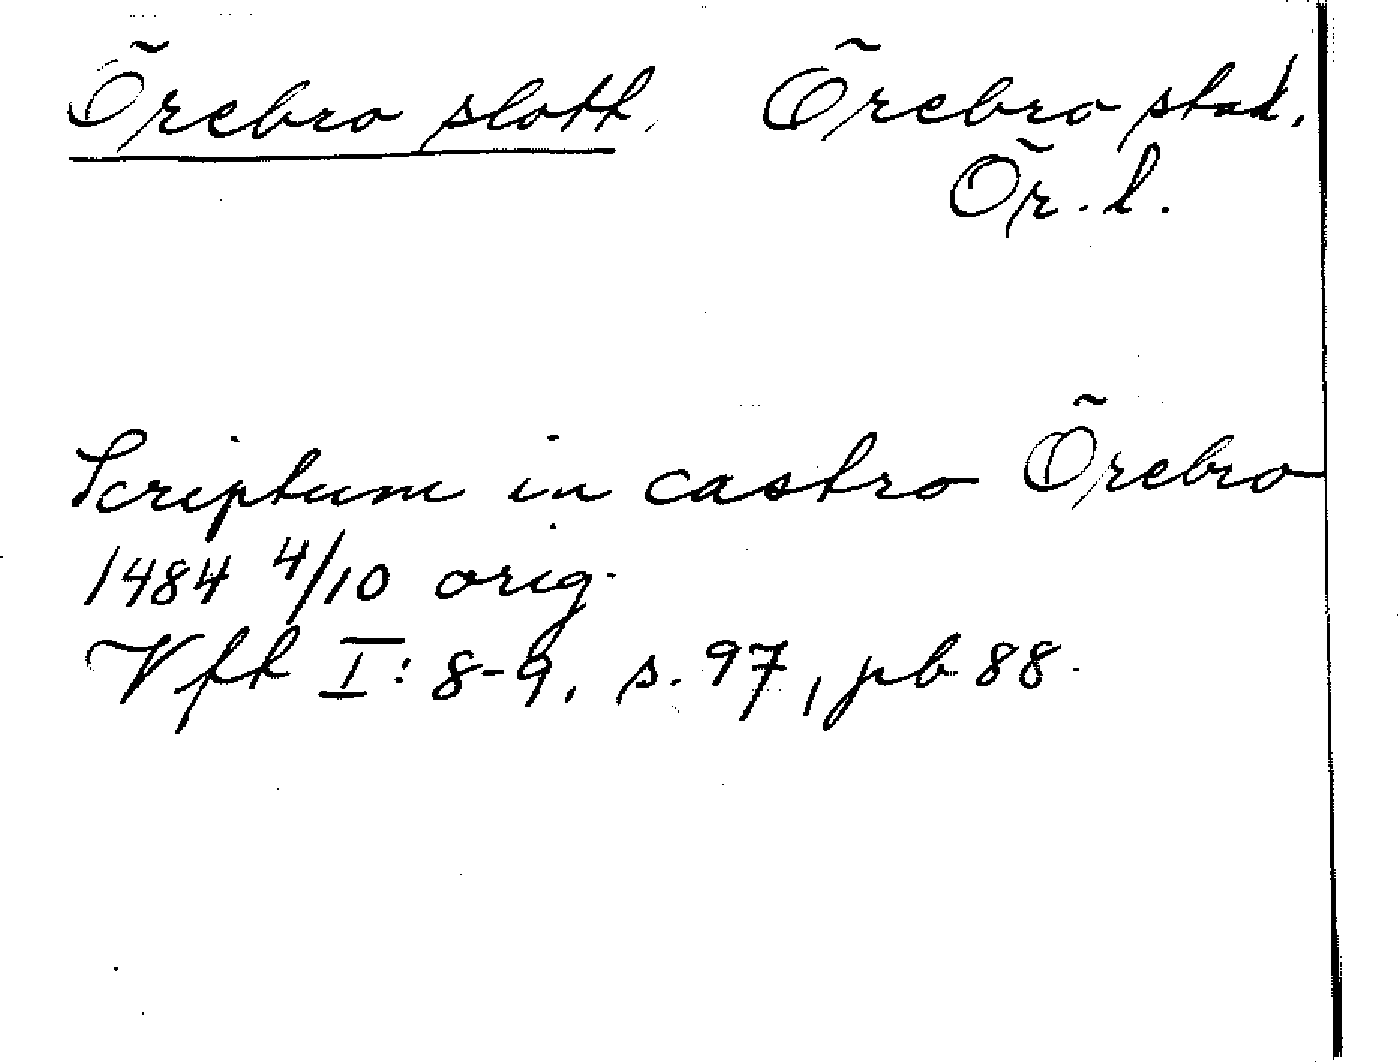 Örebro slott. Örebro stad.
Ör. l.
Scriptum in castro Örebro
1484 4/10 orig.
Vft I: 8-9, s. 97, pb 88.